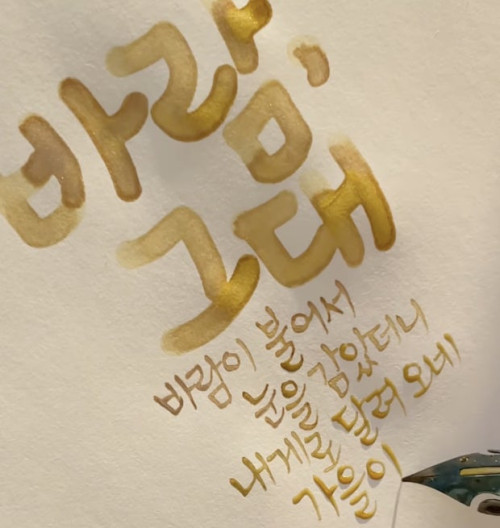 바람,
그대
바람이 불어서
눈을 감았더니
내게로 달려 오네!
가을이